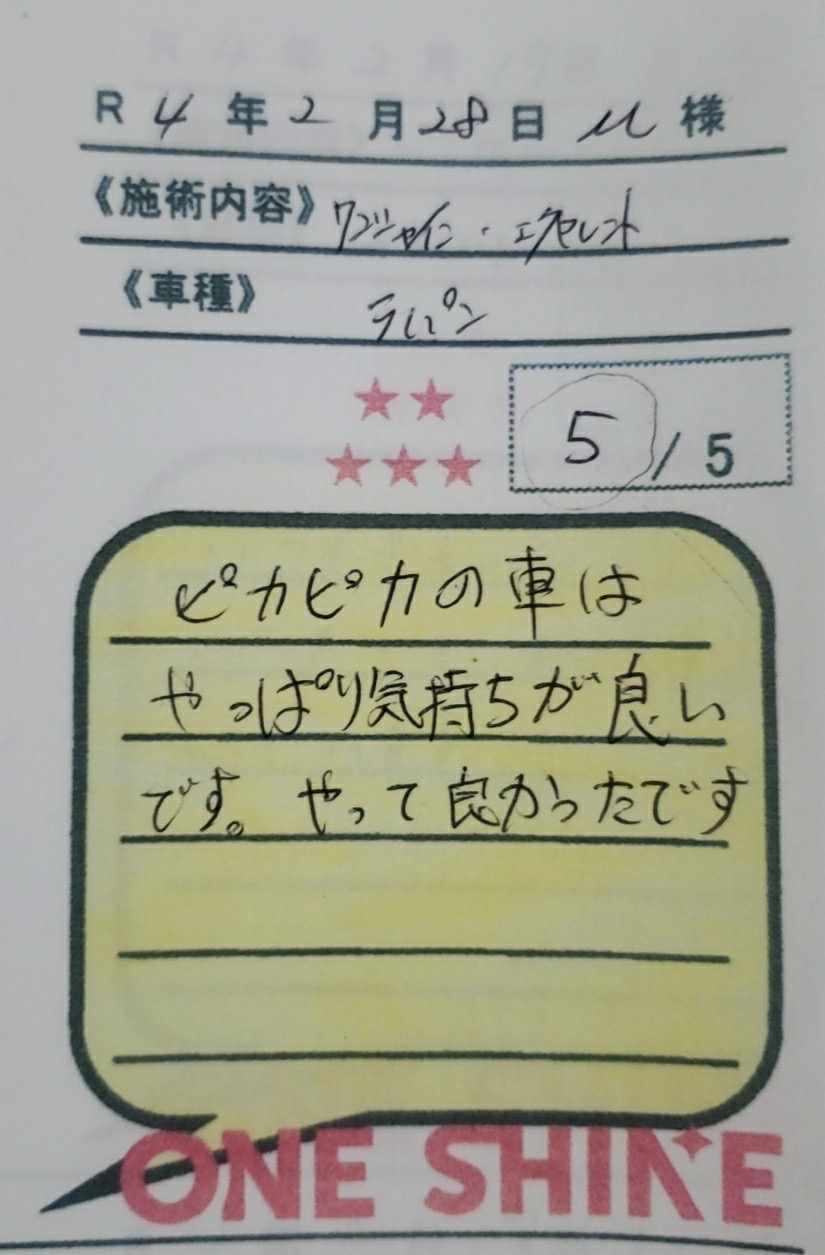 R 4 年 2 月 28 日 M 様
《施術内容》ワンシャイン・エクセレント
《車種》ラパン
★★
★★★
5 / 5
ピカピカの車は
やっぱり気持ちが良い
です。やって良かったです
ONE SHINE